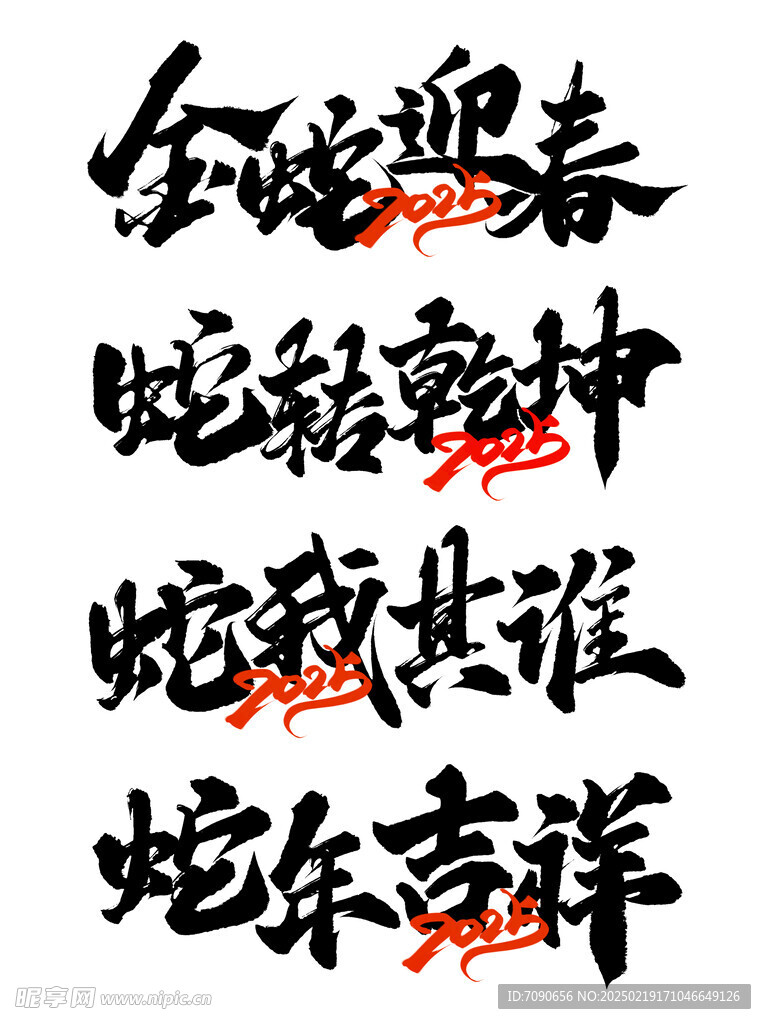 金蛇迎春
2025
蛇转乾坤
2025
蛇我其谁
2025
蛇年吉祥
2025
昵享网 www.nipic.cn
ID:7090656 NO:20250219171046649126